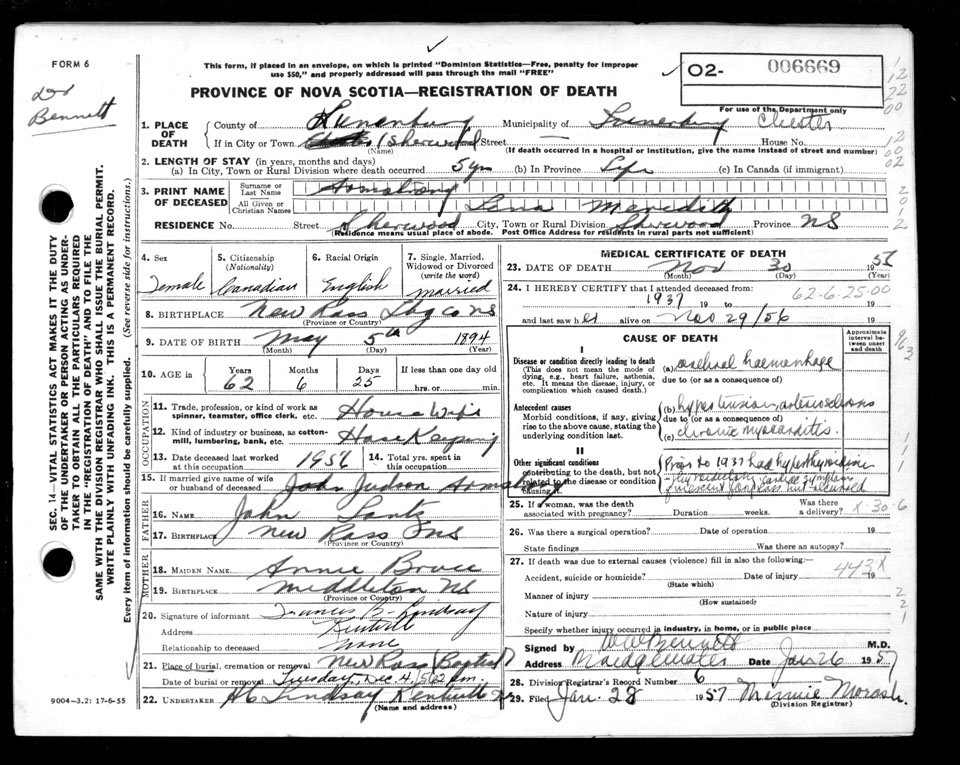 FORM 6
This form, if placed in an envelope, on which is printed "Dominion Statistics—Free, penalty for improper
use $50," and properly addressed will pass through the mail "FREE"
Bennett
PROVINCE OF NOVA SCOTIA—REGISTRATION OF DEATH
02- 006669
For use of the Department only
1. PLACE OF DEATH County of Lunenburg Municipality of Lunenburg Chester
If in City or Town Sherwood Street House No.
(Name) (If death occurred in a hospital or institution, give the name instead of street and number)
2. LENGTH OF STAY (in years, months and days)
(a) In City, Town or Rural Division where death occurred 5 yrs (b) In Province Life (c) In Canada (if immigrant)
3. PRINT NAME OF DECEASED Surname or Last Name Armstrong
All Given or Christian Names Lena Meredith
RESIDENCE No. Street Sherwood City, Town or Rural Division Sherwood Province NS
(Residence means usual place of abode. Post Office Address for residents in rural parts not sufficient)
4. Sex 5. Citizenship (Nationality) 6. Racial Origin 7. Single, Married, Widowed or Divorced (write the word)
Female Canadian English Married
8. BIRTHPLACE New Ross Lbg Co NS
(Province or Country)
9. DATE OF BIRTH May 5th 1894
(Month) (Day) (Year)
10. AGE in Years Months Days If less than one day old
62 6 25 hrs. or min.
OCCUPATION
11. Trade, profession, or kind of work as spinner, teamster, office clerk, etc. House Wife
12. Kind of industry or business, as cotton-mill, lumbering, bank, etc. House Keeping
13. Date deceased last worked at this occupation 1956 14. Total yrs. spent in this occupation
15. If married give name of wife or husband of deceased John Judson Armstrong
FATHER
16. Name John Lantz
17. Birthplace New Ross NS
(Province or Country)
MOTHER
18. Maiden Name Annie Bruce
19. Birthplace Middleton NS
(Province or Country)
20. Signature of informant Francis B. Lindsay
Address Kentville
Relationship to deceased None
21. Place of burial, cremation or removal New Ross (Baptist)
Date of burial or removal Tuesday Dec. 4, 56 2 p.m.
22. Undertaker Lindsay Kentville NS
(Name and address)
9004—3.2: 17-6-55
SEC. 14—VITAL STATISTICS ACT MAKES IT THE DUTY
OF THE UNDERTAKER OR PERSON ACTING AS UNDER-
TAKER TO OBTAIN ALL THE PARTICULARS REQUIRED
IN THE "REGISTRATION OF DEATH" AND TO FILE THE
SAME WITH THE DIVISION REGISTRAR WHO SHALL ISSUE THE BURIAL PERMIT.
WRITE PLAINLY WITH UNFADING INK. THIS IS A PERMANENT RECORD.
Every item of information should be carefully supplied. (See reverse side for instructions.)
MEDICAL CERTIFICATE OF DEATH
23. DATE OF DEATH Nov 30 1956
(Month) (Day) (Year)
24. I HEREBY CERTIFY that I attended deceased from:
1937 19 to 19
62-6-25-00
and last saw her alive on Nov 29/56
CAUSE OF DEATH
Approximate interval between onset and death
I
Disease or condition directly leading to death
(This does not mean the mode of dying, e.g., heart failure, asthenia, etc. It means the disease, injury, or complication which caused death.)
(a) cerebral haemorrhage
due to (or as a consequence of)
Antecedent causes
Morbid conditions, if any, giving rise to the above cause, stating the underlying condition last.
(b) hypertension, arteriosclerosis
due to (or as a consequence of)
(c) chronic myocarditis
II
Other significant conditions
contributing to the death, but not related to the disease or condition causing it.
Prior to 1937 had hyperthyroidism
25. If a woman, was the death associated with pregnancy? Duration weeks. Was there a delivery?
X-30-6
26. Was there a surgical operation? Date of operation 19
State findings Was there an autopsy?
27. If death was due to external causes (violence) fill in also the following:
443X
Accident, suicide or homicide? Date of injury 19
(State which)
Manner of injury
(How sustained)
Nature of injury
Specify whether injury occurred in industry, in home, or in public place
Signed by Bennett M.D.
Address Bridgewater Date Jan 26 1957
28. Division Registrar's Record Number 6
29. Filed Jan. 28 1957 Minnie Morash
(Division Registrar)